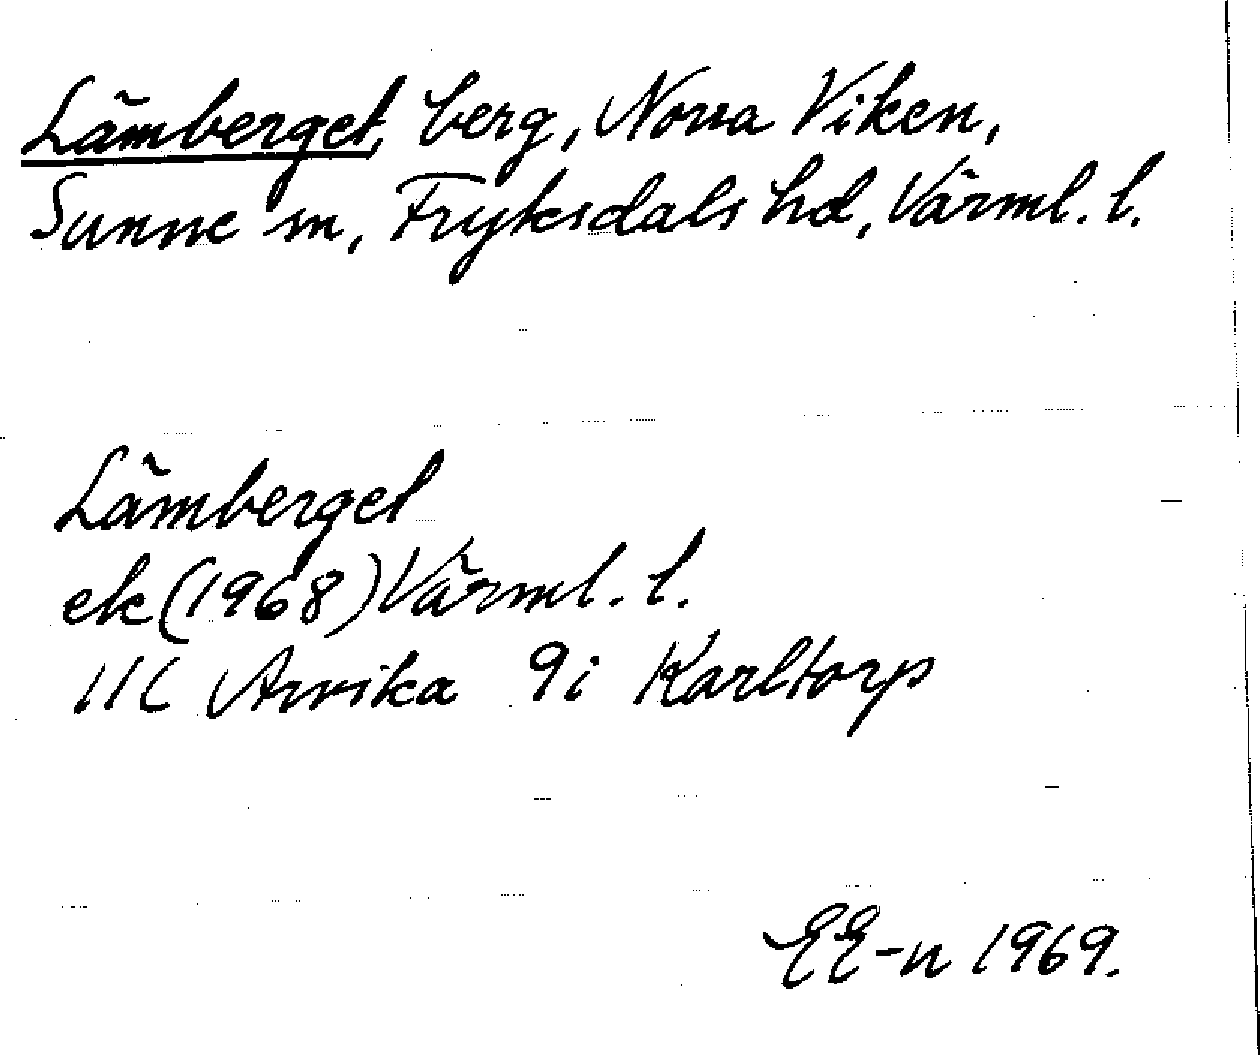 Lämberget, berg, Norra Viken,
Sunne sn, Fryksdals hd, Värml. l.
Lämberget
ek (1968) Värml. l.
11C Arvika 9i Karltorp
EE-n 1969.